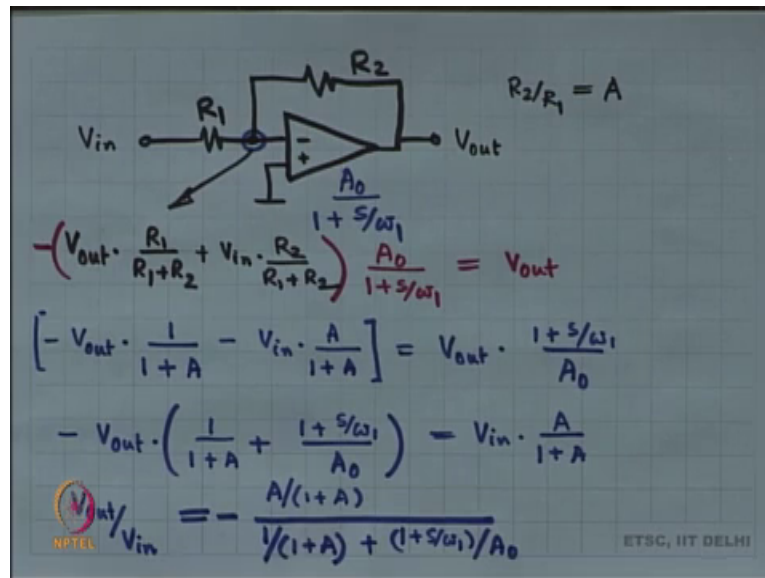 R2
R2/R1 = A
R1
Vin
Vout
-
+
A0
1 + s/ω1
-(Vout · R1/(R1+R2) + Vin · R2/(R1+R2)) A0/(1+s/ω1) = Vout
[- Vout · 1/(1+A) - Vin · A/(1+A)] = Vout · (1+s/ω1)/A0
- Vout · (1/(1+A) + (1+s/ω1)/A0) = Vin · A/(1+A)
Vout/Vin = - A/(1+A) / 1/(1+A) + (1+s/ω1)/A0
NPTEL
ETSC, IIT DELHI